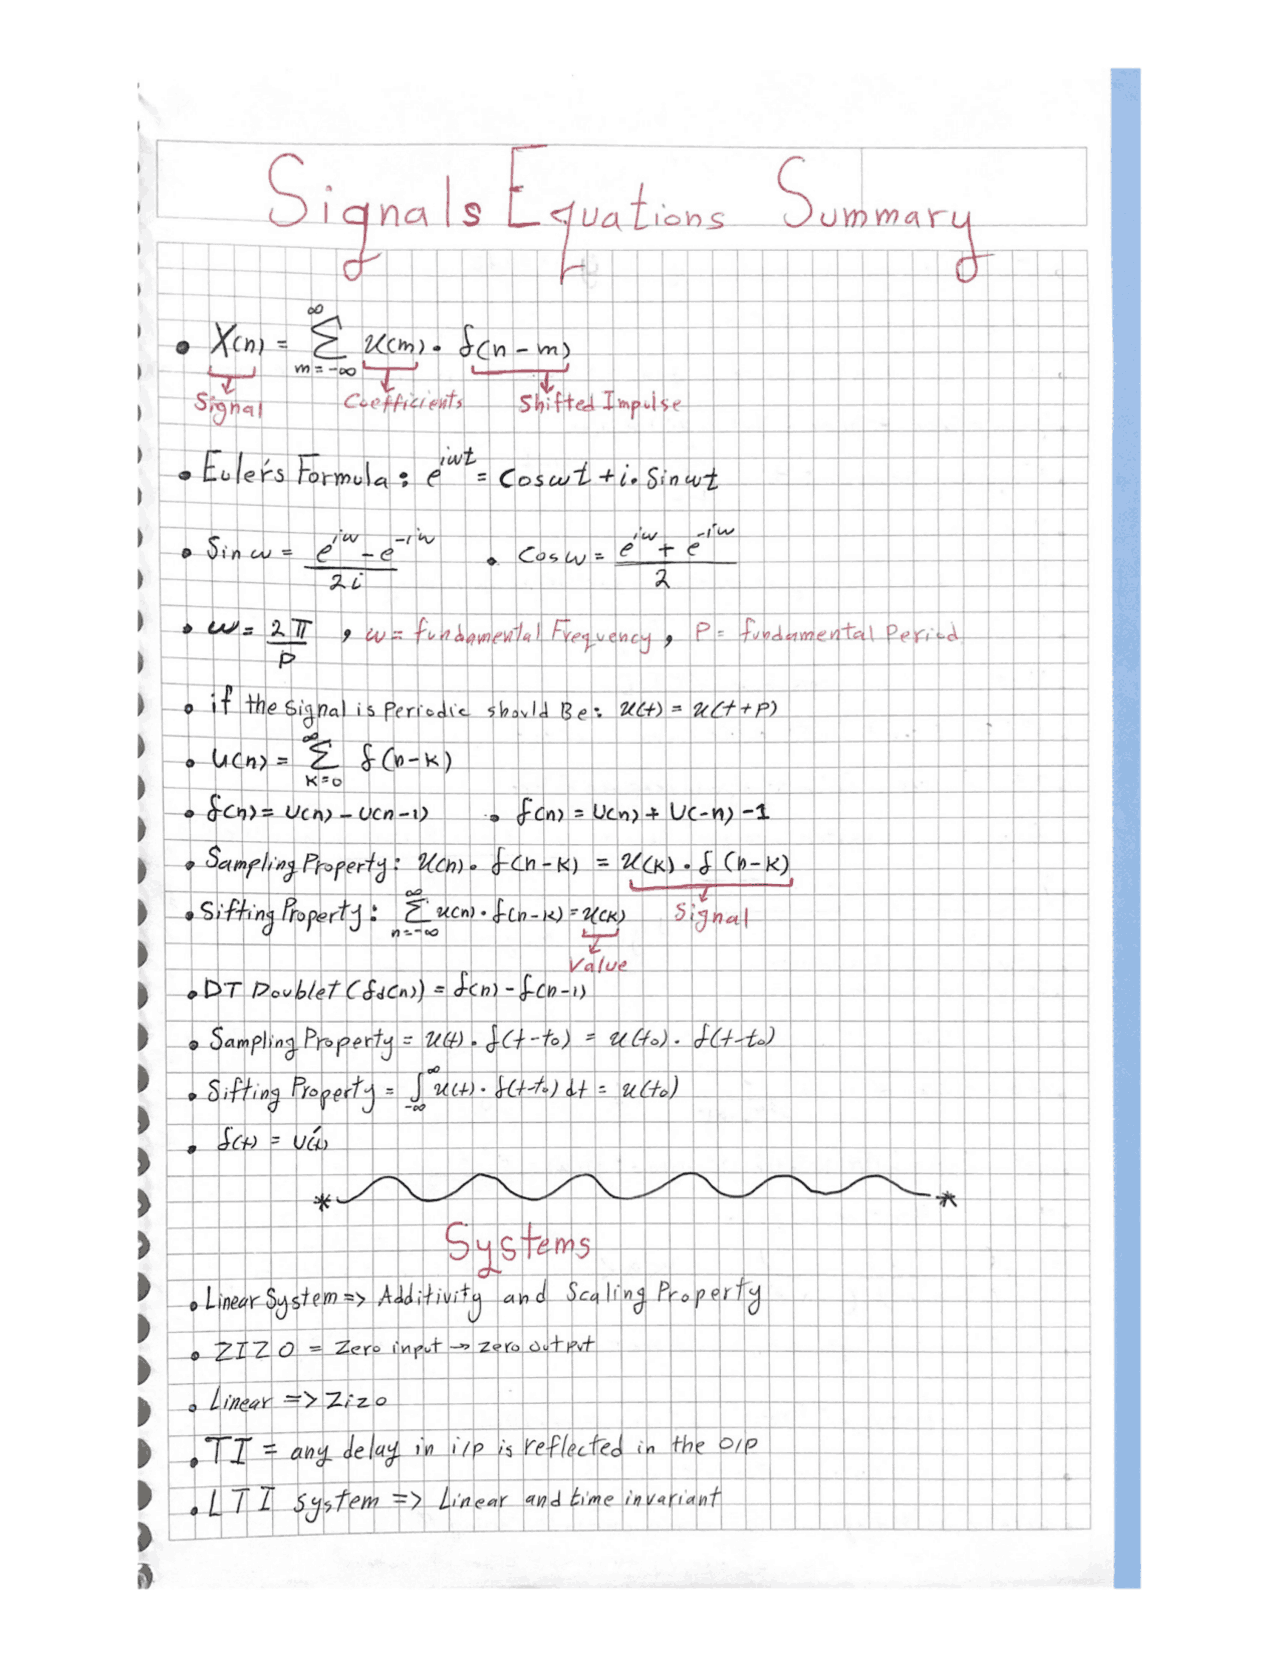 Signals Equations Summary
• X(n) = ∑_{m=-∞}^{∞} x(m) . δ(n - m)
Signal Coefficients Shifted Impulse
• Euler's Formula : e^{iwt} = Coswt + i. Sinwt
• Sin ω = (e^{iw} - e^{-iw}) / 2i • Cosω = (e^{iw} + e^{-iw}) / 2
• ω = 2π / P , ω = fundamental Frequency, P = fundamental Period
• if the signal is Periodic should Be: x(t) = x(t+P)
• U(n) = ∑_{K=0}^{∞} δ(n-K)
• δ(n) = U(n) - U(n-1) • δ(n) = U(n) + U(-n) - 1
• Sampling Property: x(n). δ(n-K) = x(K) . δ(n-K)
• Sifting Property: ∑_{n=-∞}^{∞} x(n) . δ(n-K) = x(K) Signal
Value
• DT Doublet (δd(n)) = δ(n) - δ(n-1)
• Sampling Property = x(t) . δ(t-t₀) = x(t₀) . δ(t-t₀)
• Sifting Property = ∫_{-∞}^{∞} x(t) . δ(t-t₀) dt = x(t₀)
• δ(t) = Ú(t)
Systems
• Linear System => Additivity and Scaling Property
• ZIZO = Zero input → zero output
• Linear => Zizo
• TI = any delay in i/p is reflected in the o/p
• LTI system => Linear and time invariant